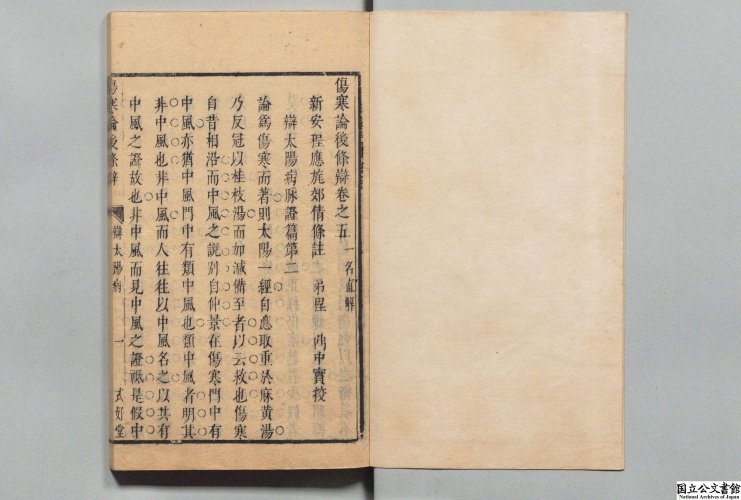 傷寒論後條辯卷之五 一名直解
新安程應旄郊倩條註 弟程 中實挍
辯太陽病脉證篇第二
論爲傷寒而著則太陽一經自應取重於麻黃湯
乃反冠以桂枝湯而加減備至者以云救也傷寒
自昔相沿而中風之說别自仲景在傷寒門中有
中風亦猶中風門中有類中風也類中風者明其
非中風也非中風而人往往以中風名之以其有
中風之證故也非中風而見中風之證祗是假中
傷寒論後條辯 辯太陽病 一 式好堂
国立公文書館
National Archives of Japan